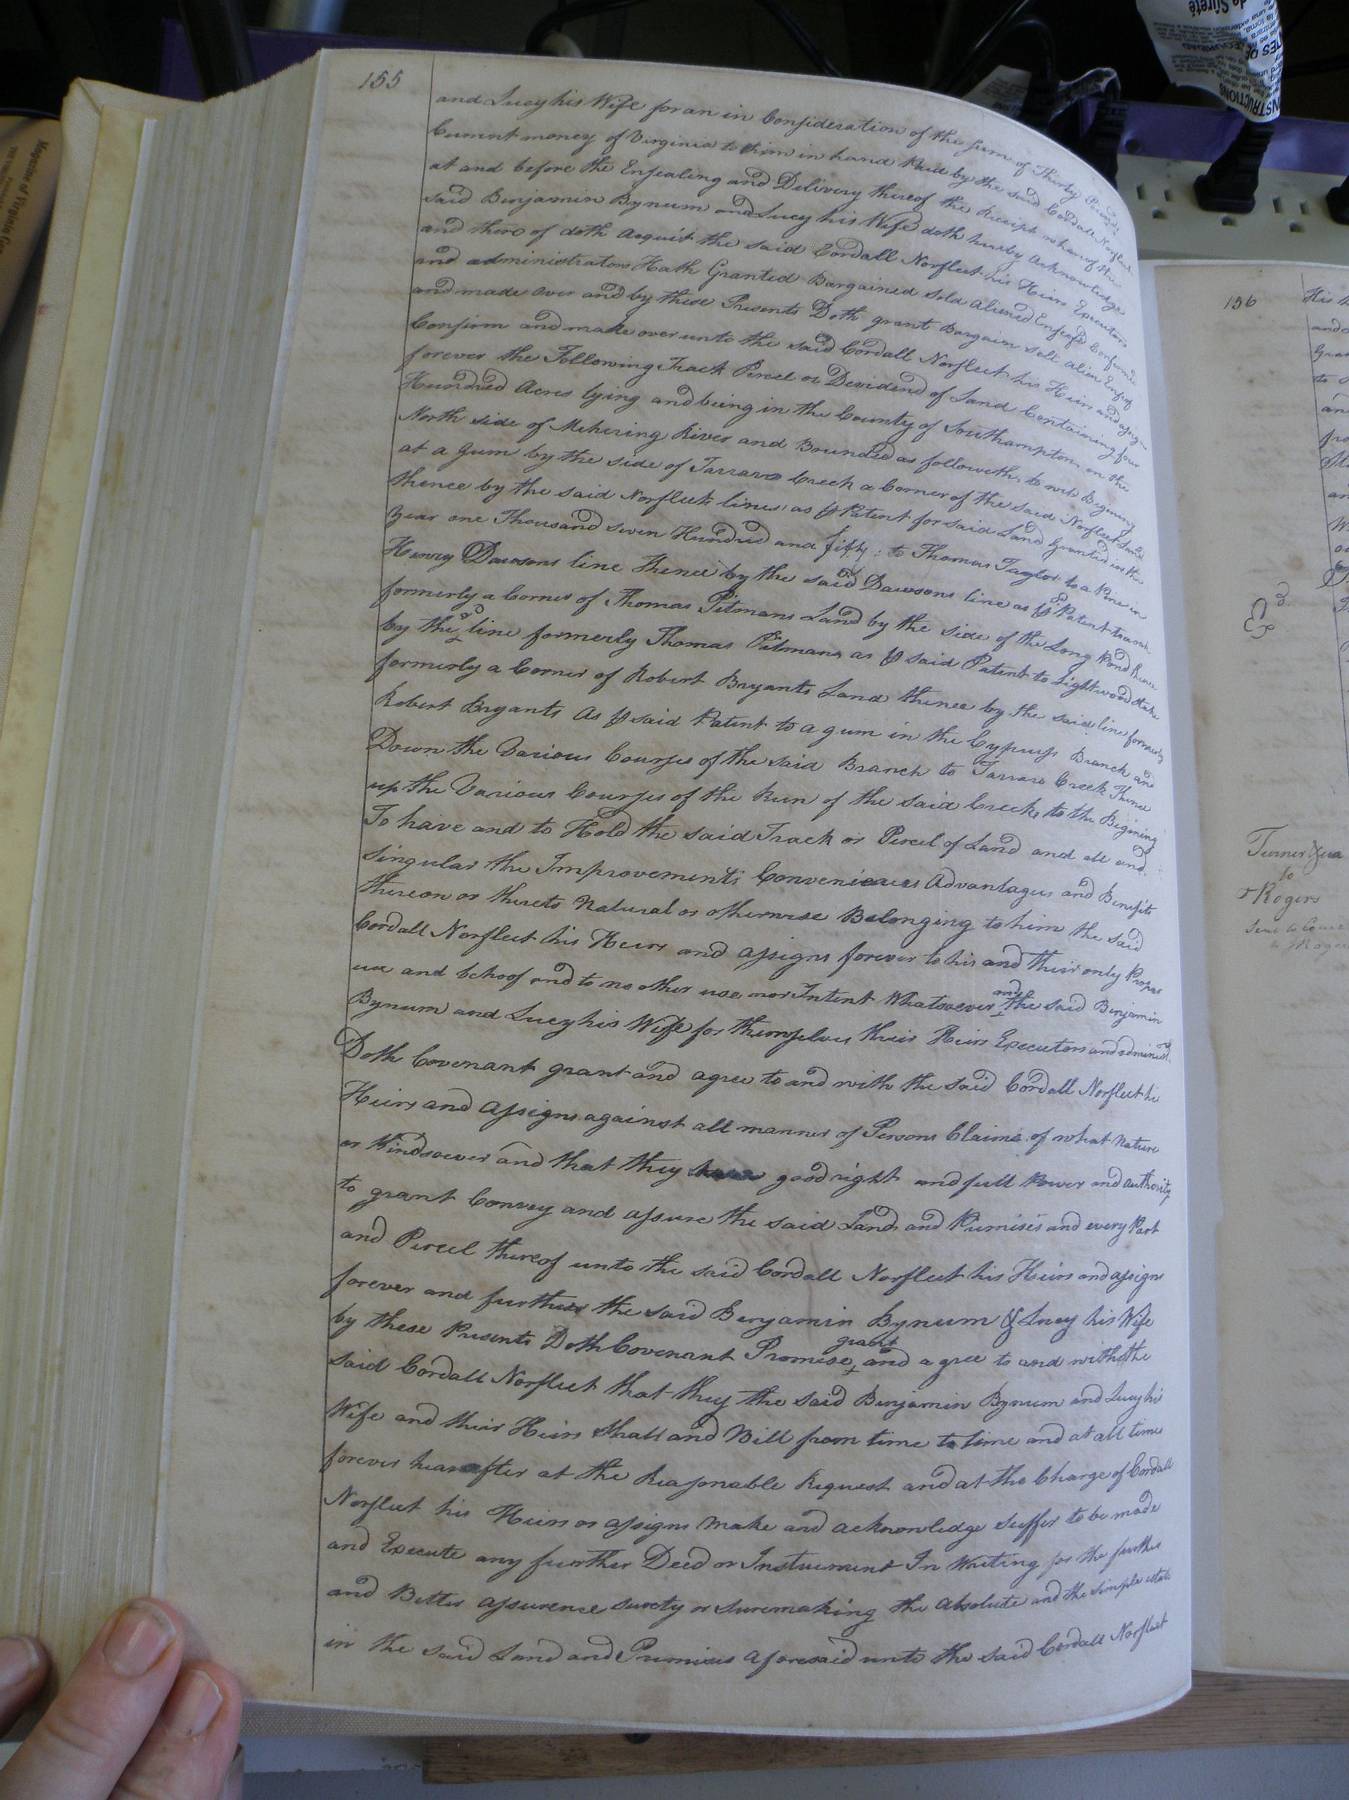 155
and Lucy his Wife for an in Consideration of the sum of Thirty Pounds
Current money of Virginia to him in hand Paid by the said Cordall Norfleet
at and before the Ensealing and Delivery thereof the Receipt whereof the
said Benjamin Bynum and Lucy his Wife doth hereby Acknowledge
and there of doth Acquit the said Cordall Norfleet his Heirs Executors
and administrators Hath Granted Bargained Sold Aliened Enfeofd Confirmed
and made over and by these Presents Doth grant Bargain sell alien Enfeof
Confirm and make over unto the said Cordall Norfleet his Heirs and assigns
forever the Following Track Percel or Devidend of Land Containing four
Hundred Acres lying and being in the County of Southampton on the
North side of Meherring River and Bounded as followeth, to wit, Begining
at a Gum by the side of Tarraro Creek a Corner of the said Norfleet Land
thence by the said Norfleets lines as ⅌ Patent for said Land Granted in the
Year one Thousand seven Hundred and fifty: to Thomas Taylor to a Pine in
Henry Dawsons line thence by the said Dawsons line as ⅌ Patent to a
formerly a Corner of Thomas Pitmans Land by the side of the Long Pond thence
by the sd line formerly Thomas Pitmans as ⅌ said Patent to Lightwood stake
formerly a Corner of Robert Bryants Land thence by the said line formerly
Robert Bryants As ⅌ said Patent to a gum in the Cypruss Branch and
Down the Various Courses of the said Branch to Tarraro Creek Thence
up the Various Courses of the Run of the said Creek, to the Begining
To have and to Hold the said Track or Percel of Land and all and
singular the Improvements Conveniences Advantages and Benefits
thereon or thereto Natural or otherwise Belonging to him the said
Cordall Norfleet his Heirs and assigns forever to his and their only Proper
use and behoof and to no other use, nor Intent Whatsoever and the said Benjamin
Bynum and Lucy his Wife for themselves their Heirs Executors and administ.
Doth Covenant grant and agree to and with the said Cordall Norfleet his
Heirs and assigns against all manner of Persons Claims of what Nature
or Kindsoever and that they good right and full Power and authority
to grant Convey and assure the said Land and Premises and every Part
and Percel thereof unto the said Cordall Norfleet his Heirs and assigns
forever and further the said Benjamin Bynum & Lucy his Wife
by these Presents Doth Covenant Promise, grant and agree to and with the
said Cordall Norfleet that they the said Benjamin Bynum and Lucy his
Wife and their Heirs Shall and Will from time to time and at all time
forever hereafter at the Reasonable Request and at the Charge of Cordall
Norfleet his Heirs or assigns make and acknowledge suffer to be made
and Execute any further Deed or Instrument In Writing for the further
and Better assurence surety or suremaking the Absolute and the simple estate
in the said Land and Premises aforesaid unto the said Cordall Norfleet
156
Turner &ca
to
Rogers
Magazine of Virginia Gen